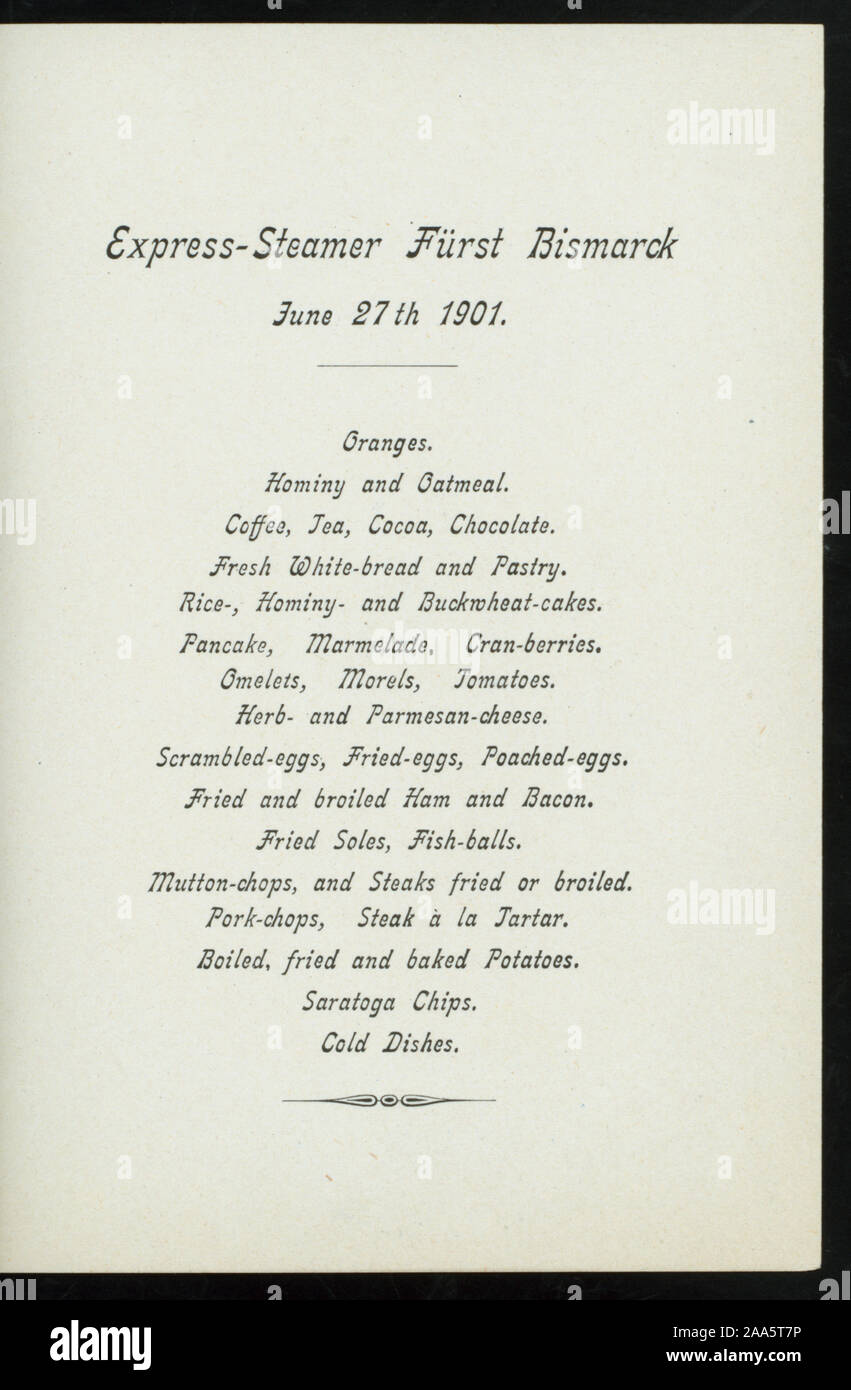 Express-Steamer Fürst Bismarck
June 27th 1901.
Oranges.
Hominy and Oatmeal.
Coffee, Tea, Cocoa, Chocolate.
Fresh White-bread and Pastry.
Rice-, Hominy- and Buckwheat-cakes.
Pancake, Marmelade, Cran-berries.
Omelets, Morels, Tomatoes.
Herb- and Parmesan-cheese.
Scrambled-eggs, Fried-eggs, Poached-eggs.
Fried and broiled Ham and Bacon.
Fried Soles, Fish-balls.
Mutton-chops, and Steaks fried or broiled.
Pork-chops, Steak à la Tartar.
Boiled, fried and baked Potatoes.
Saratoga Chips.
Cold Dishes.
alamy
alamy
alamy
alamy
Image ID: 2AA5T7P
www.alamy.com